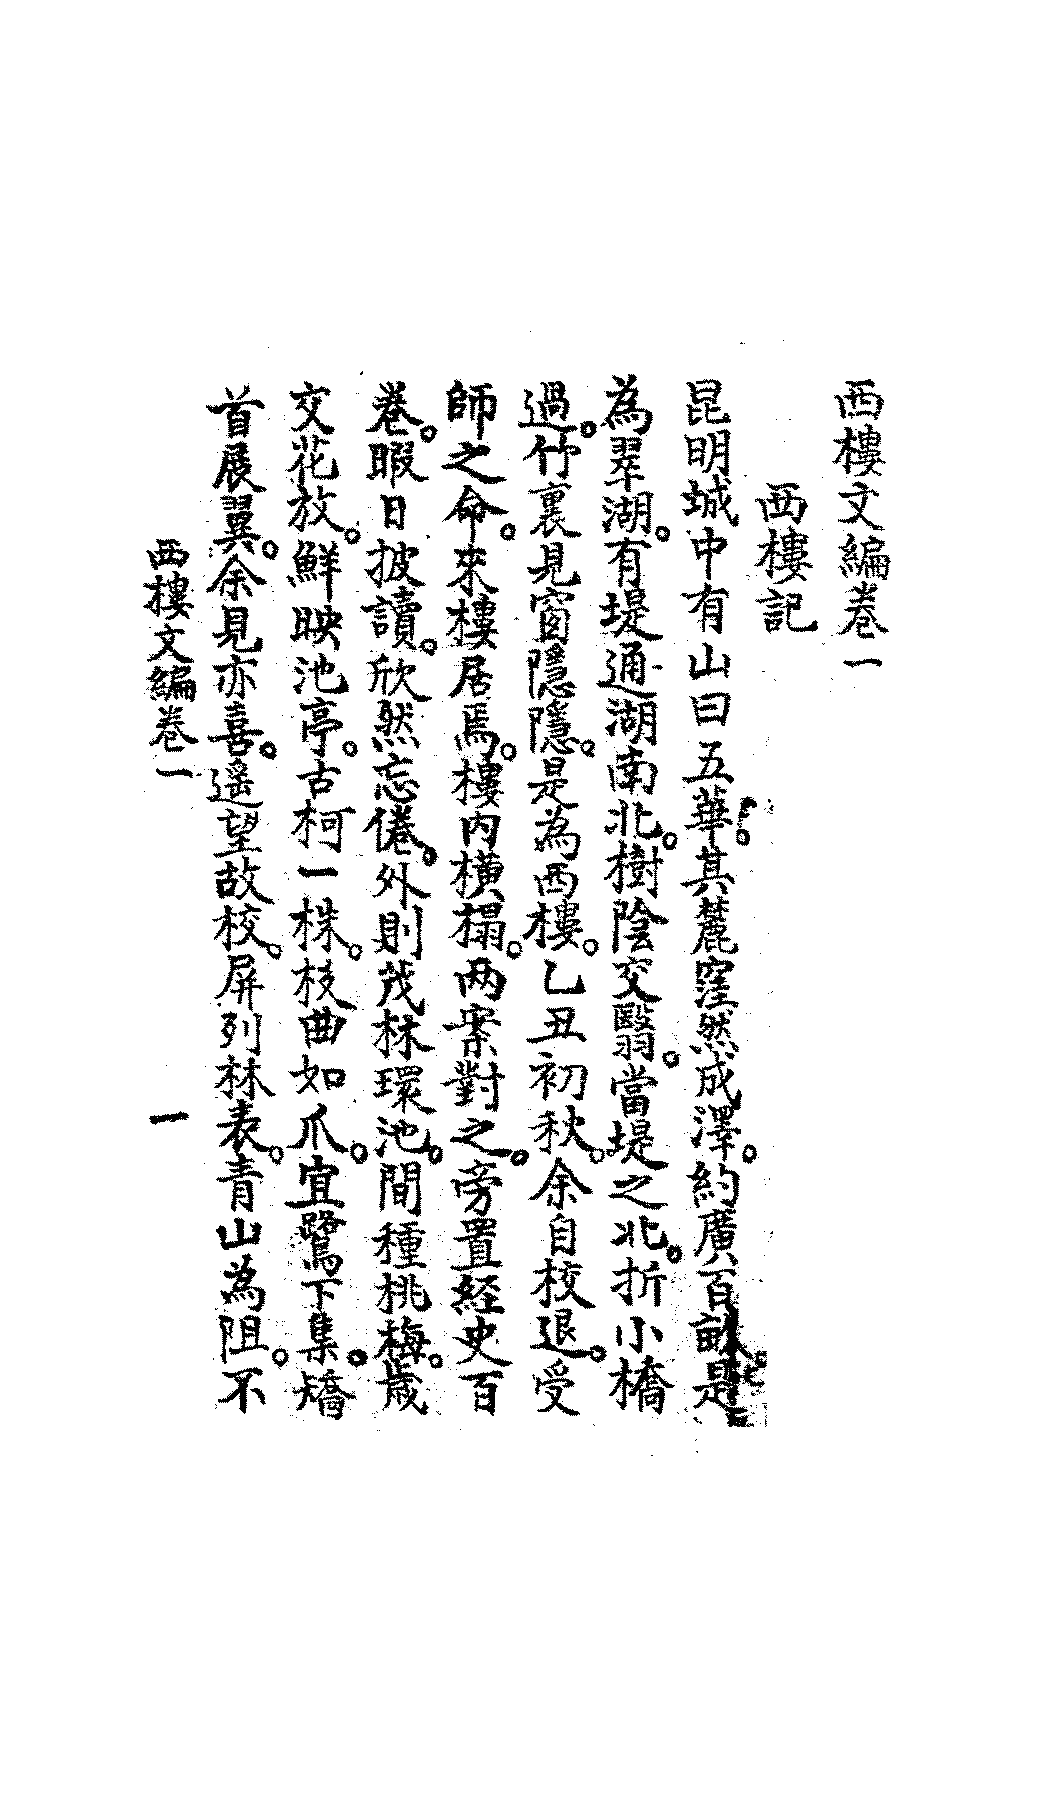 西樓文編卷一
西樓記
昆明城中有山曰五華。其麓窪然成澤。約廣百畝。是
為翠湖。有堤通湖南北。樹陰交翳。當堤之北。折小橋
過。竹裏見窗隱隱。是為西樓。乙丑初秋。余自校退。受
師之命。來樓居焉。樓内橫榻。两案對之。旁置經史百
卷。暇日披讀。欣然忘倦。外則茂林環池。間種桃梅。歲
交花放。鮮映池亭。古柯一株。枝曲如爪。宜鷺下集。矯
首展翼。余見亦喜。遥望故校。屏列林表。青山為阻。不
西樓文編卷一
一